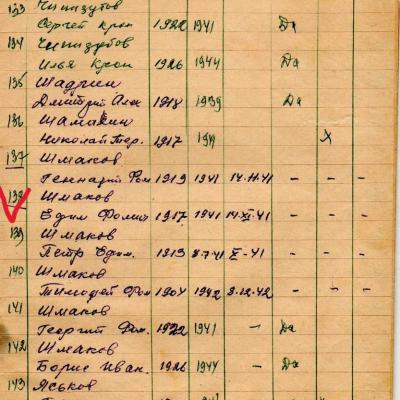 133 Чипизубов
Сергей Крон 1922 1941 Да
134 Чипизубов
Илья Крон 1926 1944 Да
135 Шадрин
Дмитрий Алек 1918 1939 Да
136 Шамакин
Николай Тер. 1917 Х
137 Шмаков
Геннадий Фом 1919 1941 14.11.41 - - -
138 Шмаков
Едим Фомич 1917 1941 14.XI-41 - - -
139 Шмаков
Петр Едим. 1919 8.7.41 X-41 - - -
140 Шмаков
Тимофей Фом 1904 1942 9.12.42 - - -
141 Шмаков
Георгий Фом. 1922 1941 - Да
142 Шмаков
Борис Иван. 1926 1944 - Да
143 Яськов